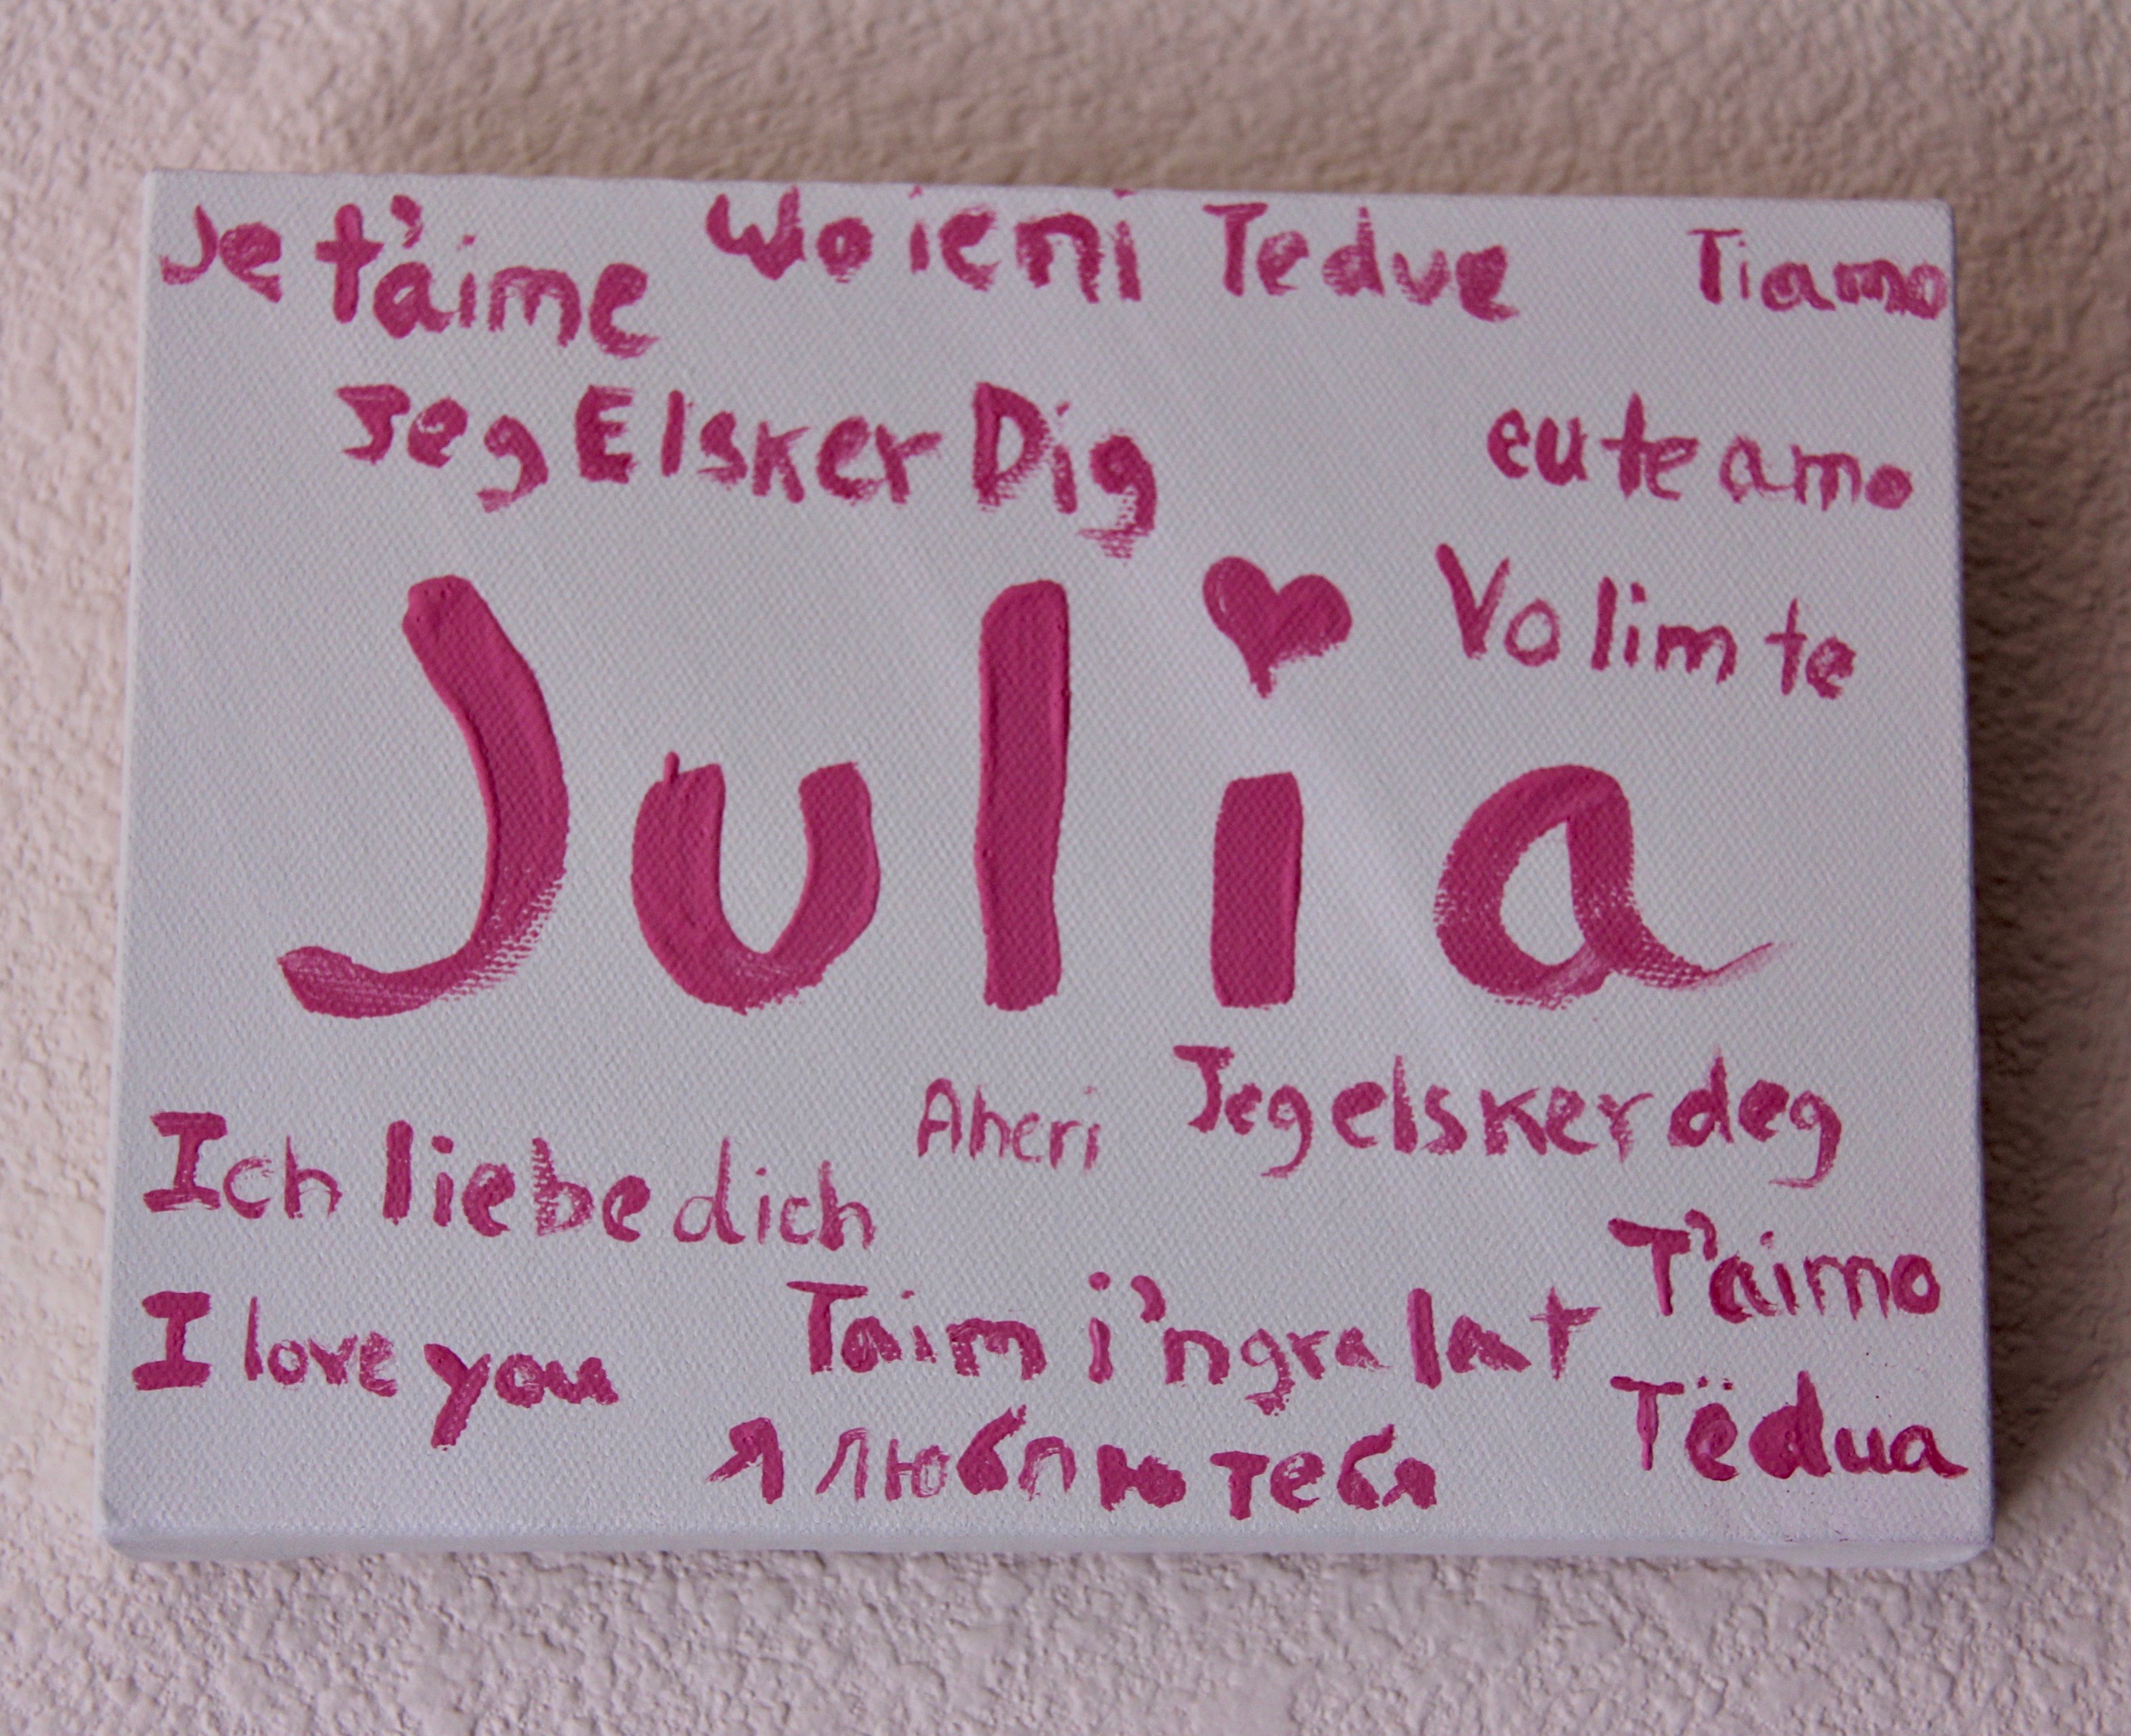 Je t'aime Wo ie ni Te due Ti amo
Jeg Elsker Dig eu te amo
Volim te
Julia
Aheri Jeg elsker deg
Ich liebe dich
T'aimo
I love you Taim i'ngra leat
Të dua
Я люблю тебя